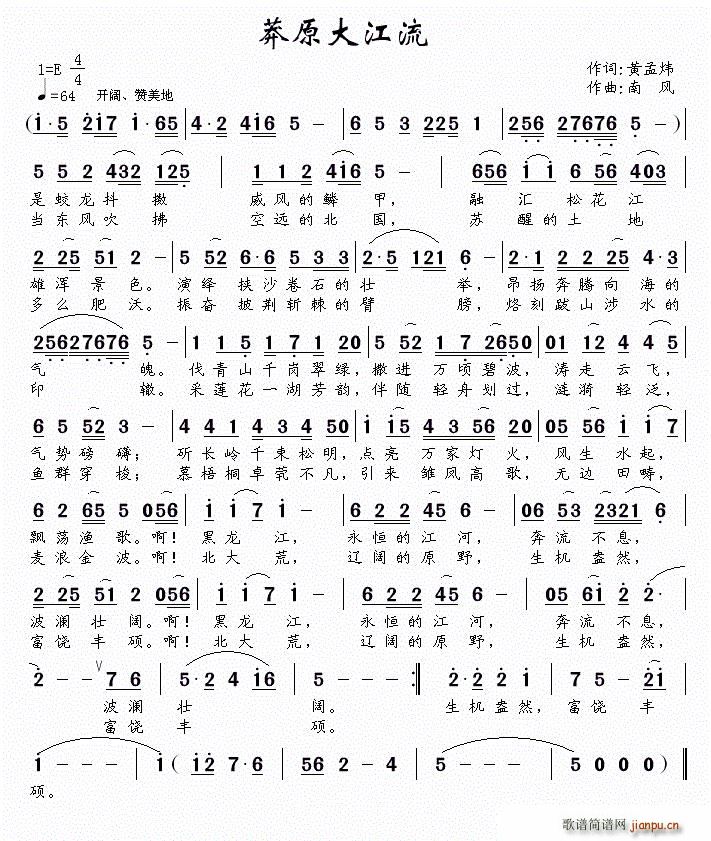 莽原大江流
1=E 4/4
作词:黄孟炜
♩=64 开阔、赞美地
作曲:南 风
(i·5 2i7 i·65 | 4·2 4i6 5 - | 6 5 3 225 1 | 256 27676 5 -)
5 5 2 432 125 | 1 1 2 4i6 5 - | 656 i i 6 56 403
是蛟龙抖擞 威风的鳞甲, 融汇松花江
当东风吹拂 空远的北国, 苏醒的土地
2 25 51 2 - | 5 52 6·6 5 3 3 | 2·5 121 6 - | 2·1 5 5 2 25 4·3
雄浑景色。演绎扶沙卷石的壮举,昂扬奔腾向海的
多么肥沃。振奋披荆斩棘的臂膀,烙刻跋山涉水的
25627676 5 - | 5 1 5 1 7 1 20 | 5 52 1 7 2650 | 01 12 4 4 5
气魄。伐青山千岗翠绿,撒进万顷碧波,涛走云飞,
印辙。采莲花一湖芳韵,伴随轻舟划过,涟漪轻泛,
6 5 25 5 - | 4 4 1 4 3 4 50 | i i5 4 3 56 20 | 05 56 i i 7
气势磅礴;斫长岭千束松明,点亮万家灯火,风生水起,
鱼群穿梭;慕梧桐卓荦不凡,引来雏凤高歌,无边田畴,
6 2 65 5 056 | i i 7 - | 6 2 2 45 6 - | 06 53 2321 6
飘荡渔歌。啊!黑龙江,永恒的江河,奔流不息,
麦浪金波。啊!北大荒,辽阔的原野,生机盎然,
2 25 51 2 056 | i i 7 - | 6 2 2 45 6 - | 05 61 2 2
波澜壮阔。啊!黑龙江,永恒的江河,奔流不息,
富饶丰硕。啊!北大荒,辽阔的原野,生机盎然,
2 - - 7 6 | 5·2 4 i6 | 5 - - - :| 2·2 2 i | 7 5 - 2i
波澜壮阔。生机盎然,富饶丰
富饶丰硕。
i - - - | i (i2 7·6 | 56 2 - 4 | 5 - - - | 5 0 0 0) ‖
硕。
歌谱简谱网
jianpu.cn